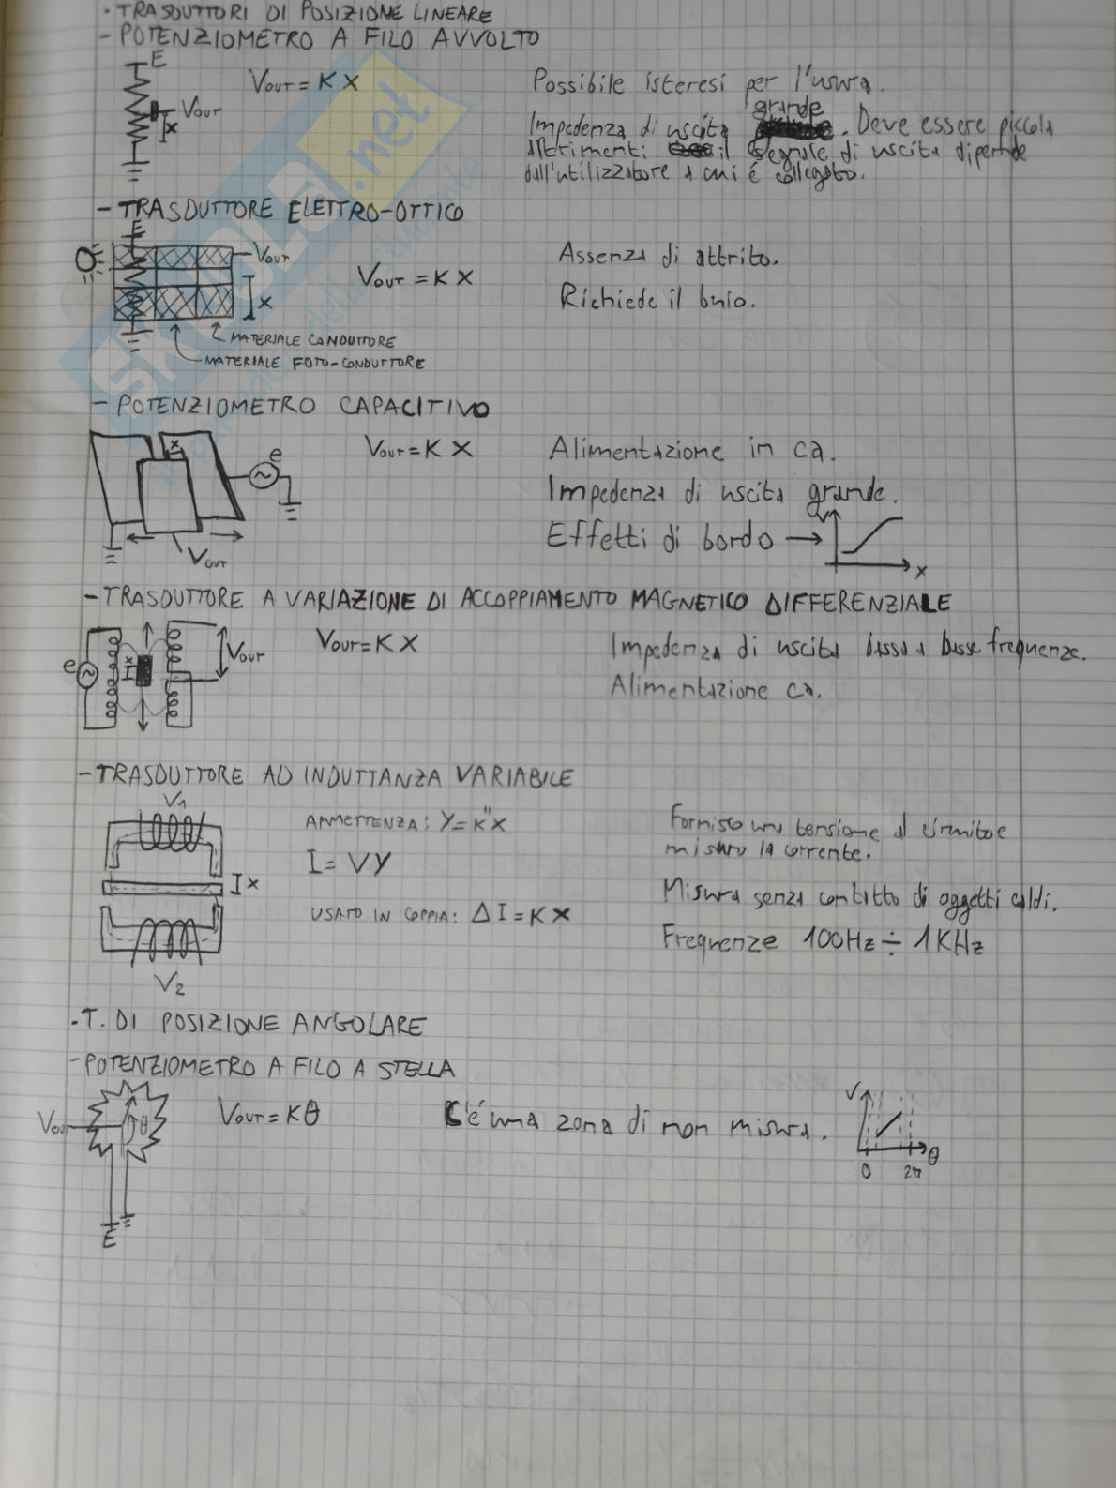 · TRASDUTTORI DI POSIZIONE LINEARE
- POTENZIOMETRO A FILO AVVOLTO
E
VOUT = K X
Possibile isteresi per l'usura.
VOUT
X
grande
Impedenza di uscita . Deve essere piccola
altrimenti il segnale di uscita dipende
dall'utilizzatore a cui é collegato.
- TRASDUTTORE ELETTRO-OTTICO
E
VOUT
VOUT = K X
Assenza di attrito.
X
Richiede il buio.
MATERIALE CONDUTTORE
MATERIALE FOTO-CONDUTTORE
- POTENZIOMETRO CAPACITIVO
X
e
VOUT = K X
Alimentazione in ca.
Impedenza di uscita grande.
Effetti di bordo → V
X
VOUT
- TRASDUTTORE A VARIAZIONE DI ACCOPPIAMENTO MAGNETICO DIFFERENZIALE
e
X
VOUT
VOUT = K X
Impedenza di uscita bassa a basse frequenze.
Alimentazione ca.
- TRASDUTTORE AD INDUTTANZA VARIABILE
V1
AMMETTENZA: Y = K" X
Fornisco una tensione al circuito e
misuro la corrente.
I = V Y
X
Misura senza contatto di oggetti caldi.
USATO IN COPPIA: Δ I = K X
Frequenze 100Hz ÷ 1KHz
V2
· T. DI POSIZIONE ANGOLARE
- POTENZIOMETRO A FILO A STELLA
VOUT
θ
VOUT = K θ
C'é una zona di non misura.
V
θ
0 2π
E
SKUOLA.net